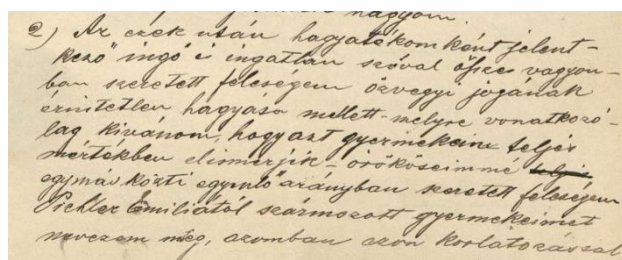 nagyom.
2) Az ezek után hagyatékomként jelent-
kező ingó és ingatlan szóval összes vagyon-
ban szeretett feleségem özvegyi jogának
érintetlen hagyása mellett - melyre vonatkozó-
lag kivánom, hogy azt gyermekeim teljes
mértékben elismerjék - örököseimmé teljes
egymás közti egyenlő arányban szeretett feleségem
Pichler Emiliától származott gyermekeimet
nevezem meg, azomban azon korlátozással